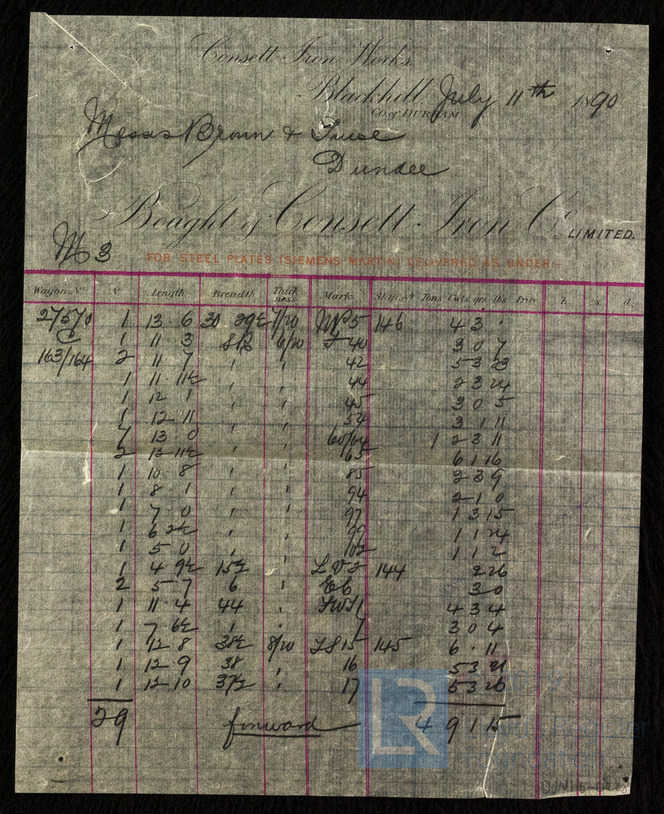 Consett Iron Works,
Blackhill July 11th 1890
CO. of DURHAM
Brown &
Dundee
Bought of Consett Iron Co. LIMITED.
M 3
FOR STEEL PLATES (SIEMENS MARTIN) DELIVERED AS UNDER:—
Wagon No. No. Length Breadth Thickness Mark Ship No. Tons Cwts qrs lbs Price £ s. d.
27570 1 13 6 30 7/20 5 146 4 3
1 11 3 6/20 40 3 0 7
163/164 2 11 7 " " 42 5 3 23
1 11 11½ " " 44 2 3 24
1 12 1 " " 45 3 0 5
1 12 11 " " 54 3 1 11
7 13 0 " " 60/64 1 2 3 11
2 13 11½ " " 65 6 1 16
1 10 8 " " 85 2 3 9
1 8 1 " " 94 2 1 0
1 7 0 " " 97 1 3 15
1 6 2½ " " 1 1 24
1 5 0 " " 102 1 1 2
1 4 9½ 15½ " 144 2 26
2 5 7 6 " 3 0
1 11 4 44 " 4 3 4
1 7 6½ " " 3 0 4
1 12 8 38½ 8/20 15 145 6 11
1 12 9 38 " 16 5 3 21
1 12 10 37½ " 17 5 3 26
29 forward 4 9 1 15
LR
Foundation